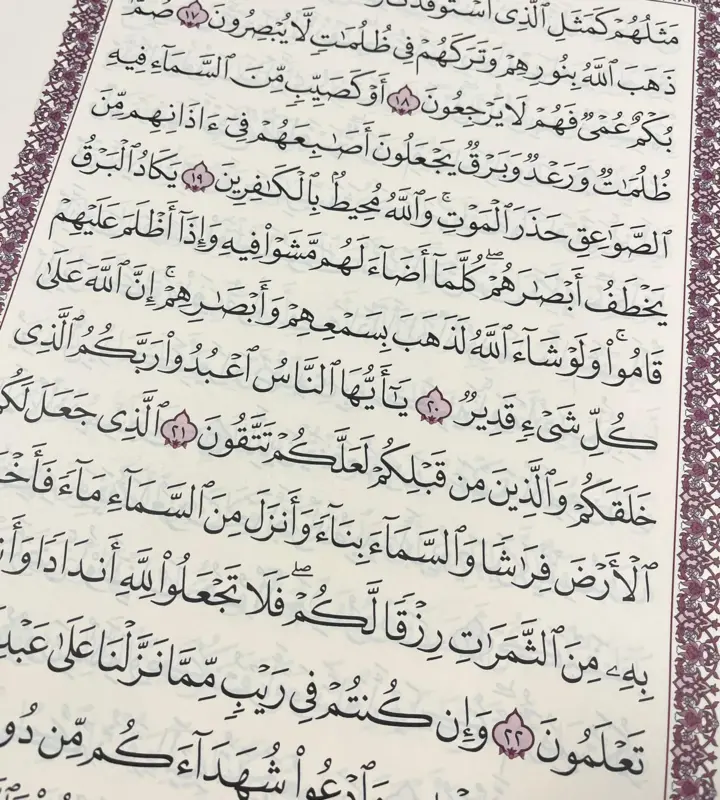 مَثَلُهُمْ كَمَثَلِ ٱلَّذِى ٱسْتَوْقَدَ
ذَهَبَ ٱللَّهُ بِنُورِهِمْ وَتَرَكَهُمْ فِى ظُلُمَٰتٍ لَّا يُبْصِرُونَ ١٧ صُمٌّۢ
بُكْمٌ عُمْىٌ فَهُمْ لَا يَرْجِعُونَ ١٨ أَوْ كَصَيِّبٍ مِّنَ ٱلسَّمَآءِ فِيهِ
ظُلُمَٰتٌ وَرَعْدٌ وَبَرْقٌ يَجْعَلُونَ أَصَٰبِعَهُمْ فِىٓ ءَاذَانِهِم مِّنَ
ٱلصَّوَٰعِقِ حَذَرَ ٱلْمَوْتِ ۚ وَٱللَّهُ مُحِيطٌۢ بِٱلْكَٰفِرِينَ ١٩ يَكَادُ ٱلْبَرْقُ
يَخْطَفُ أَبْصَٰرَهُمْ ۖ كُلَّمَآ أَضَآءَ لَهُم مَّشَوْا۟ فِيهِ وَإِذَآ أَظْلَمَ عَلَيْهِمْ
قَامُوا۟ ۚ وَلَوْ شَآءَ ٱللَّهُ لَذَهَبَ بِسَمْعِهِمْ وَأَبْصَٰرِهِمْ ۚ إِنَّ ٱللَّهَ عَلَىٰ
كُلِّ شَىْءٍ قَدِيرٌ ٢٠ يَٰٓأَيُّهَا ٱلنَّاسُ ٱعْبُدُوا۟ رَبَّكُمُ ٱلَّذِى
خَلَقَكُمْ وَٱلَّذِينَ مِن قَبْلِكُمْ لَعَلَّكُمْ تَتَّقُونَ ٢١ ٱلَّذِى جَعَلَ لَكُمُ
ٱلْأَرْضَ فِرَٰشًا وَٱلسَّمَآءَ بِنَآءً وَأَنزَلَ مِنَ ٱلسَّمَآءِ مَآءً
بِهِۦ مِنَ ٱلثَّمَرَٰتِ رِزْقًا لَّكُمْ ۖ فَلَا تَجْعَلُوا۟ لِلَّهِ أَندَادًا
تَعْلَمُونَ ٢٢ وَإِن كُنتُمْ فِى رَيْبٍ مِّمَّا نَزَّلْنَا عَلَىٰ
وَٱدْعُوا۟ شُهَدَآءَكُم مِّن